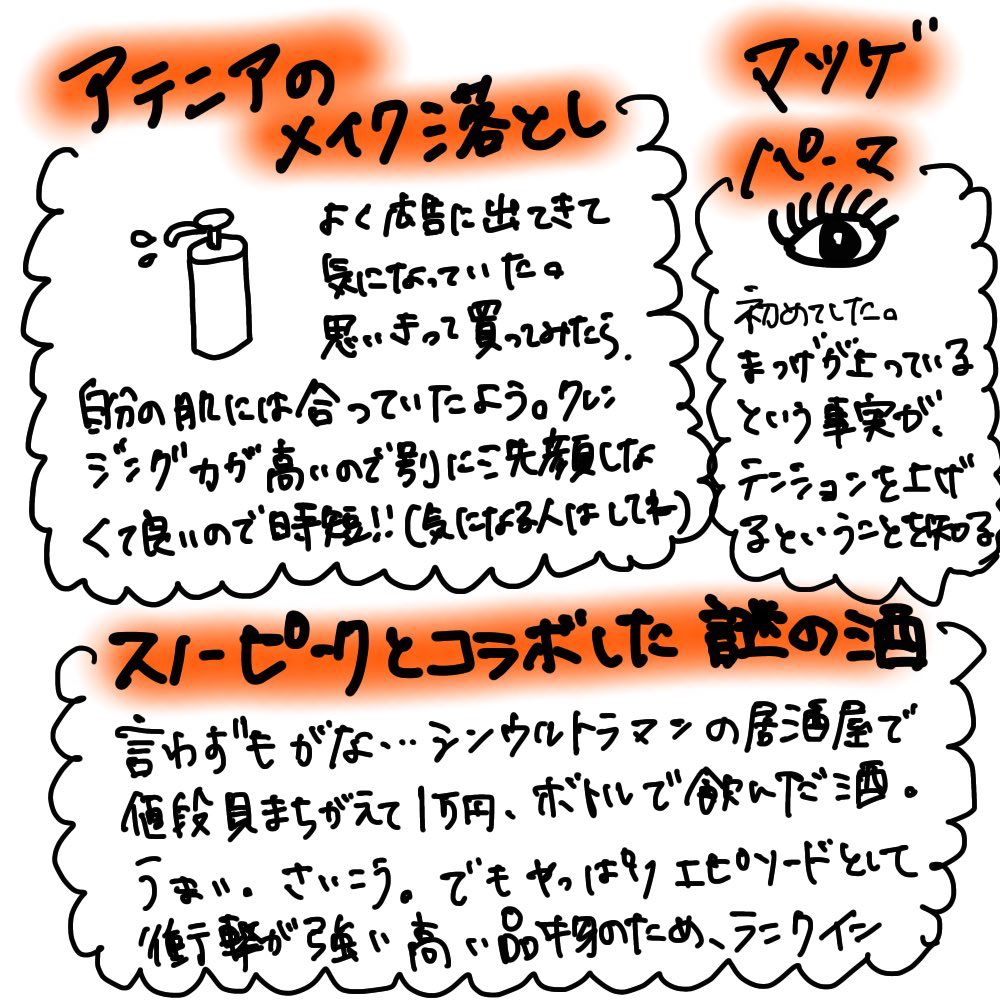 アテニアの
メイク落とし
よく広告に出てきて
気になっていた。
思いきって買ってみたら、
自分の肌には合っていたよう。クレン
ジング力が高いので別に洗顔しな
くて良いので時短!!(気になる人はしてね)
マツゲ
パーマ
初めてした。
まつげが上っている
という事実が、
テンションを上げ
るということを知る
スノーピークとコラボした謎の酒
言わずもがな…シンウルトラマンの居酒屋で
値段見まちがえて1万円、ボトルで飲んだ酒。
うまい。さいこう。でもやっぱりエピソードとして
衝撃が強い高い品物のため、ランクイン